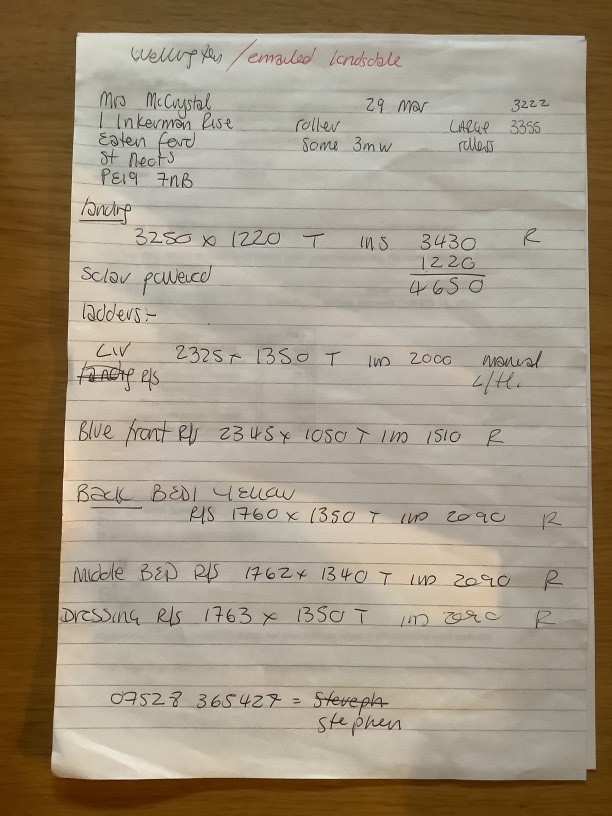 / emailed landsdale
Mrs McCrystal 29 mar 3222
1 Inkerman Rise roller LARGE 3355
Eaten ford some 3mw rollers
St Neots
PE19 7NB
landing
3250 x 1220 T ins 3430 R
1220
Solar powered 4650
ladders:-
LIV 2325 x 1350 T ins 2000 manual
landing R/S L/H.
Blue front R/S 2345 x 1050 T ins 1510 R
Back BED1 YELLOW
R/S 1760 x 1350 T ins 2090 R
Middle BED R/S 1762 x 1340 T ins 2090 R
Dressing R/S 1763 x 1350 T ins 2090 R
07528 365427 = Steveph
stephen